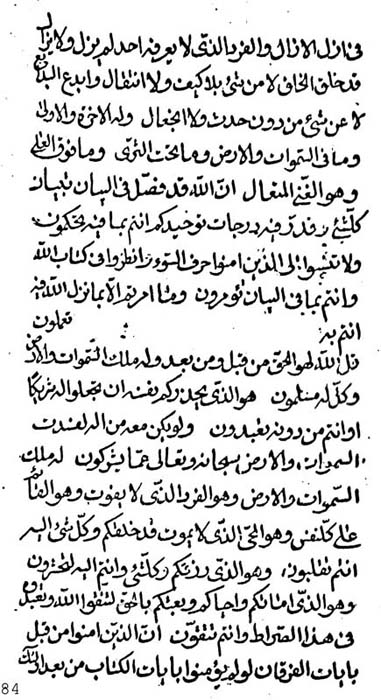 فی ازل الازال والفرد الذی لا یعرفه احد لم یزل ولا یزال
قد خلق الخلق لا من شیٔ بلا کیف ولا انتقال وابدع البدایع
لا عن شیٔ من دون حدث ولا انجعال وله الاخرة والاولی
وما فی السموات والارض وما تحت الثری وما فوق العلی
وهو الغنی المتعال ان الله قد فصل فی البیان تبیان
کلشیٔ وقدر فیه درجات توحیدکم انتم بما فیه تحکمون
ولا تنسبوا الی الذین امنوا حرف السوء وانظروا فی کتاب الله
وانتم بما فی البیان تؤمرون وما امرتم الا بما نزل الله فیه
انتم به تعملون
قل الله لهو الحق من قبل ومن بعد وله ملک السموات والارض
وکل له مسلمون هو الذی یحذرکم بنفسه ان تجعلوا له شریکا
او انتم من دونه تعبدون ولو یکن معه من اله لفسدت
السموات والارض سبحانه وتعالی عما یشرکون له ملک
السموات والارض وهو الفرد الذی لا یفوت وهو القائم
علی کل نفس وهو الحی الذی لا یموت قد خلقکم وکل شیٔ الیه
انتم تقلبون وهو الذی رزقکم وکلشیٔ وانتم الیه لتحشرون
وهو الذی اماتکم واحیاکم ویبعثکم بالحق لتتقوا الله وتعبدوه
فی هذا الصراط وانتم تتقون ان الذین امنوا من قبل
بایات الفرقان لو لم یؤمنوا بایات الکتاب من بعد اولئک
84